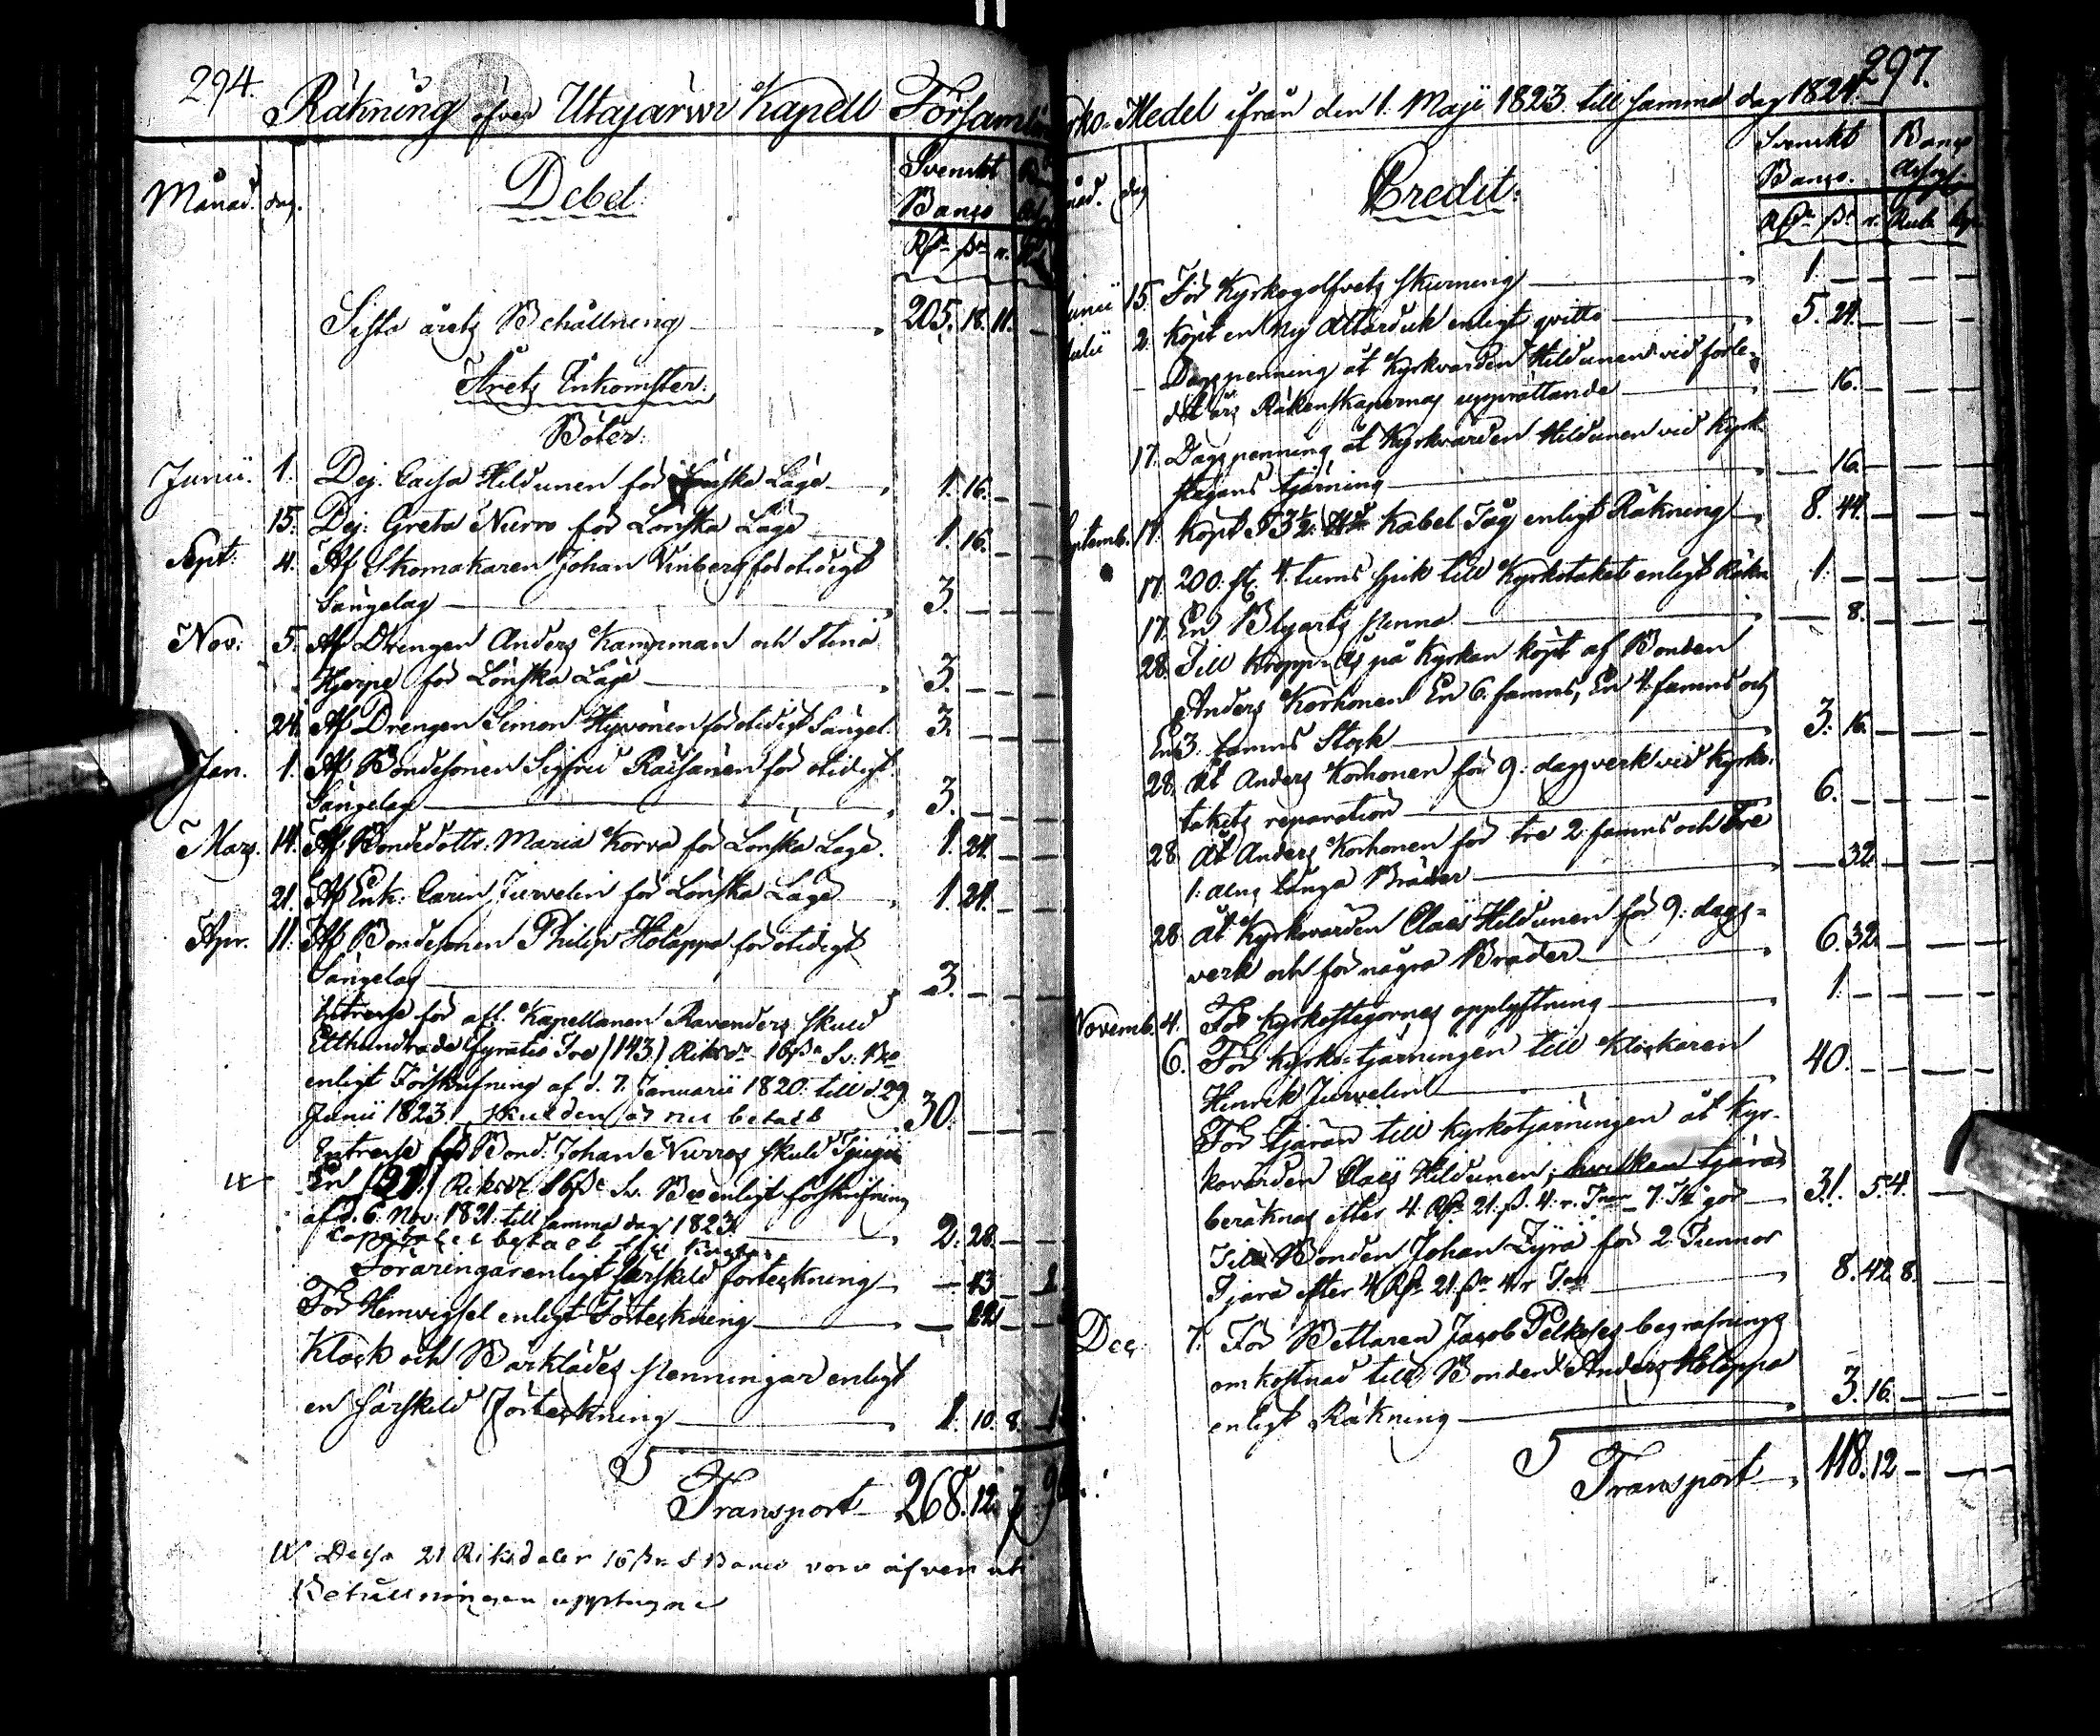 294.
Räkning öfver Utajärwi Kapell Församlin
Månad. dag. Debet Svenskt Banco
Rdr ßr r.
Sista årets Behållning 205. 18. 11.
Årets Inkomster:
Böter:
Junii. 1. Pig. Caisa Hildunen för Lönska Läge 1. 16. —
15. Pig. Greta Nurro för Lönska Läge 1. 16. —
Sept. 4. Af Skomakaren Johan Vinberg för otidigt
Sängelag 3. — —
Nov: 5. Af Drengen Anders Kampman och Stina
Hjerpe för Lönska Läge 3. — —
24. Af Drengen Simon Hyvönen för otidigt Sängel. 3. — —
Jan. 1. Af Bondesonen Sigfrid Räisänen för otidigt
Sängelag 3. — —
Mars. 14. Af Bondedottr. Maria Korva för Lönska Läge. 1. 24. —
21. Af Enk. Carin Jurvelin för Lönska Läge 1. 24. —
Apr. 11. Af Bondesonen Philip Holappa för otidigt
Sängelag 3. — —
Intresse för afl. Kapellanen Ravanders skuld
Etthundrade fyratio Tre (143) Riksdr 16 ßr Sv. Bco
enligt Förskrifning af d. 7. Januarii 1820. till d. 29
Junii 1823. skulden är nu betalt 30. — —
Intresse för Bond. Johan Nurros skuld Tjugu
En (21) Riksdr 16 ßr Sv. Bco enligt förskrifning
af d. 6. Nov. 1821. till samma dag 1823.
Capitalet betalt till Kassan. 2. 28. —
Föräringar enligt särskild förteckning — 43. —
För Hemvigsel enligt Förteckning — 24. —
Klock och Bårklädes penningar enligt
en särskild Förteckning 1. 10. 8.
Transport 268. 12. 7
Dessa 21 Riksdaler 16 ßr S Banco voro äfven uti
Behållningen upptagne
297.
rko-Medel ifrån den 1. Maji 1823. till samma dag 1824.
nad. dag Credit: Svenskt Banco. Banco Assign.
Rdr ßr r. Rub. kop.
Junii 15. För Kyrkogolfvets skurning 1. — — — —
Julii 2. Köpt en Ny Altarduk enligt qvitto 5. 24. — — —
— Dagspenning åt Kyrkvärden Hildunen vid förle-
det års Räkenskapernas upprättande — 16. — — —
17. Dagspenning åt Kyrkvärden Hildunen vid Kyrk-
stegans tjärning — 16. — — —
ptemb. 17. Köpt 3½ Kabel Tåg enligt Räkning 8. 44. — — —
17. 200. st. 4. tums spik till Kyrkotaket enligt Räkn 1. — — — —
17. En Blyerts penna — 8. — — —
28. Till Kropp-Ås på Kyrkan köpt af Bonden
Anders Korhonen En 6. famns, En 4. famns och
En 3. famns Stock 3. 16. — — —
28. Åt Anders Korhonen för 9. dagsverk vid Kyrko-
takets reparation 6. — — — —
28. Åt Anders Korhonen för tre 2 famns och Tre
1. alns långa Bräder — 32. — — —
28. Åt Kyrkovärden Claës Hildunen för 9. dags-
verk och för några Bräder 6. 32. — — —
Novemb. 4. För Kyrkostegornes upplyftning 1. — — — —
6. För Kyrko-tjärningen till Klockaren
Henrik Jurvelin 40. — — — —
För Tjäran till Kyrkotjärningen åt Kyr-
kovärden Claës Hildunen; hvilken tjära
beräknas efter 4. Rdr 21. ß. 4. r. Tnn 7. Tr gör 31. 5. 4. — —
Till Bonden Johan Zyrä för 2. Tunnor
Tjära efter 4 Rdr 21. ßr 4. r Tnn 8. 42. 8. — —
Dec. 7. För Bettlaren Jacob Pelkoses begrafnings
omkostnad till Bonden Anders Holappa
enligt Räkning 3. 16. — — —
Transport 118. 12 — — —